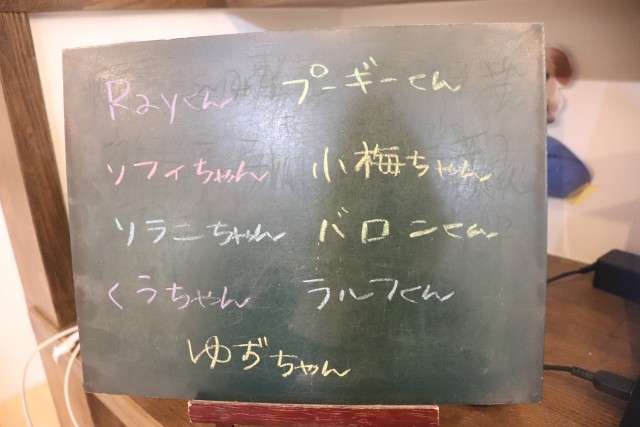 Rayくん プーギーくん
ソフィちゃん 小梅ちゃん
ソラニちゃん バロンくん
くうちゃん ラルフくん
ゆずちゃん